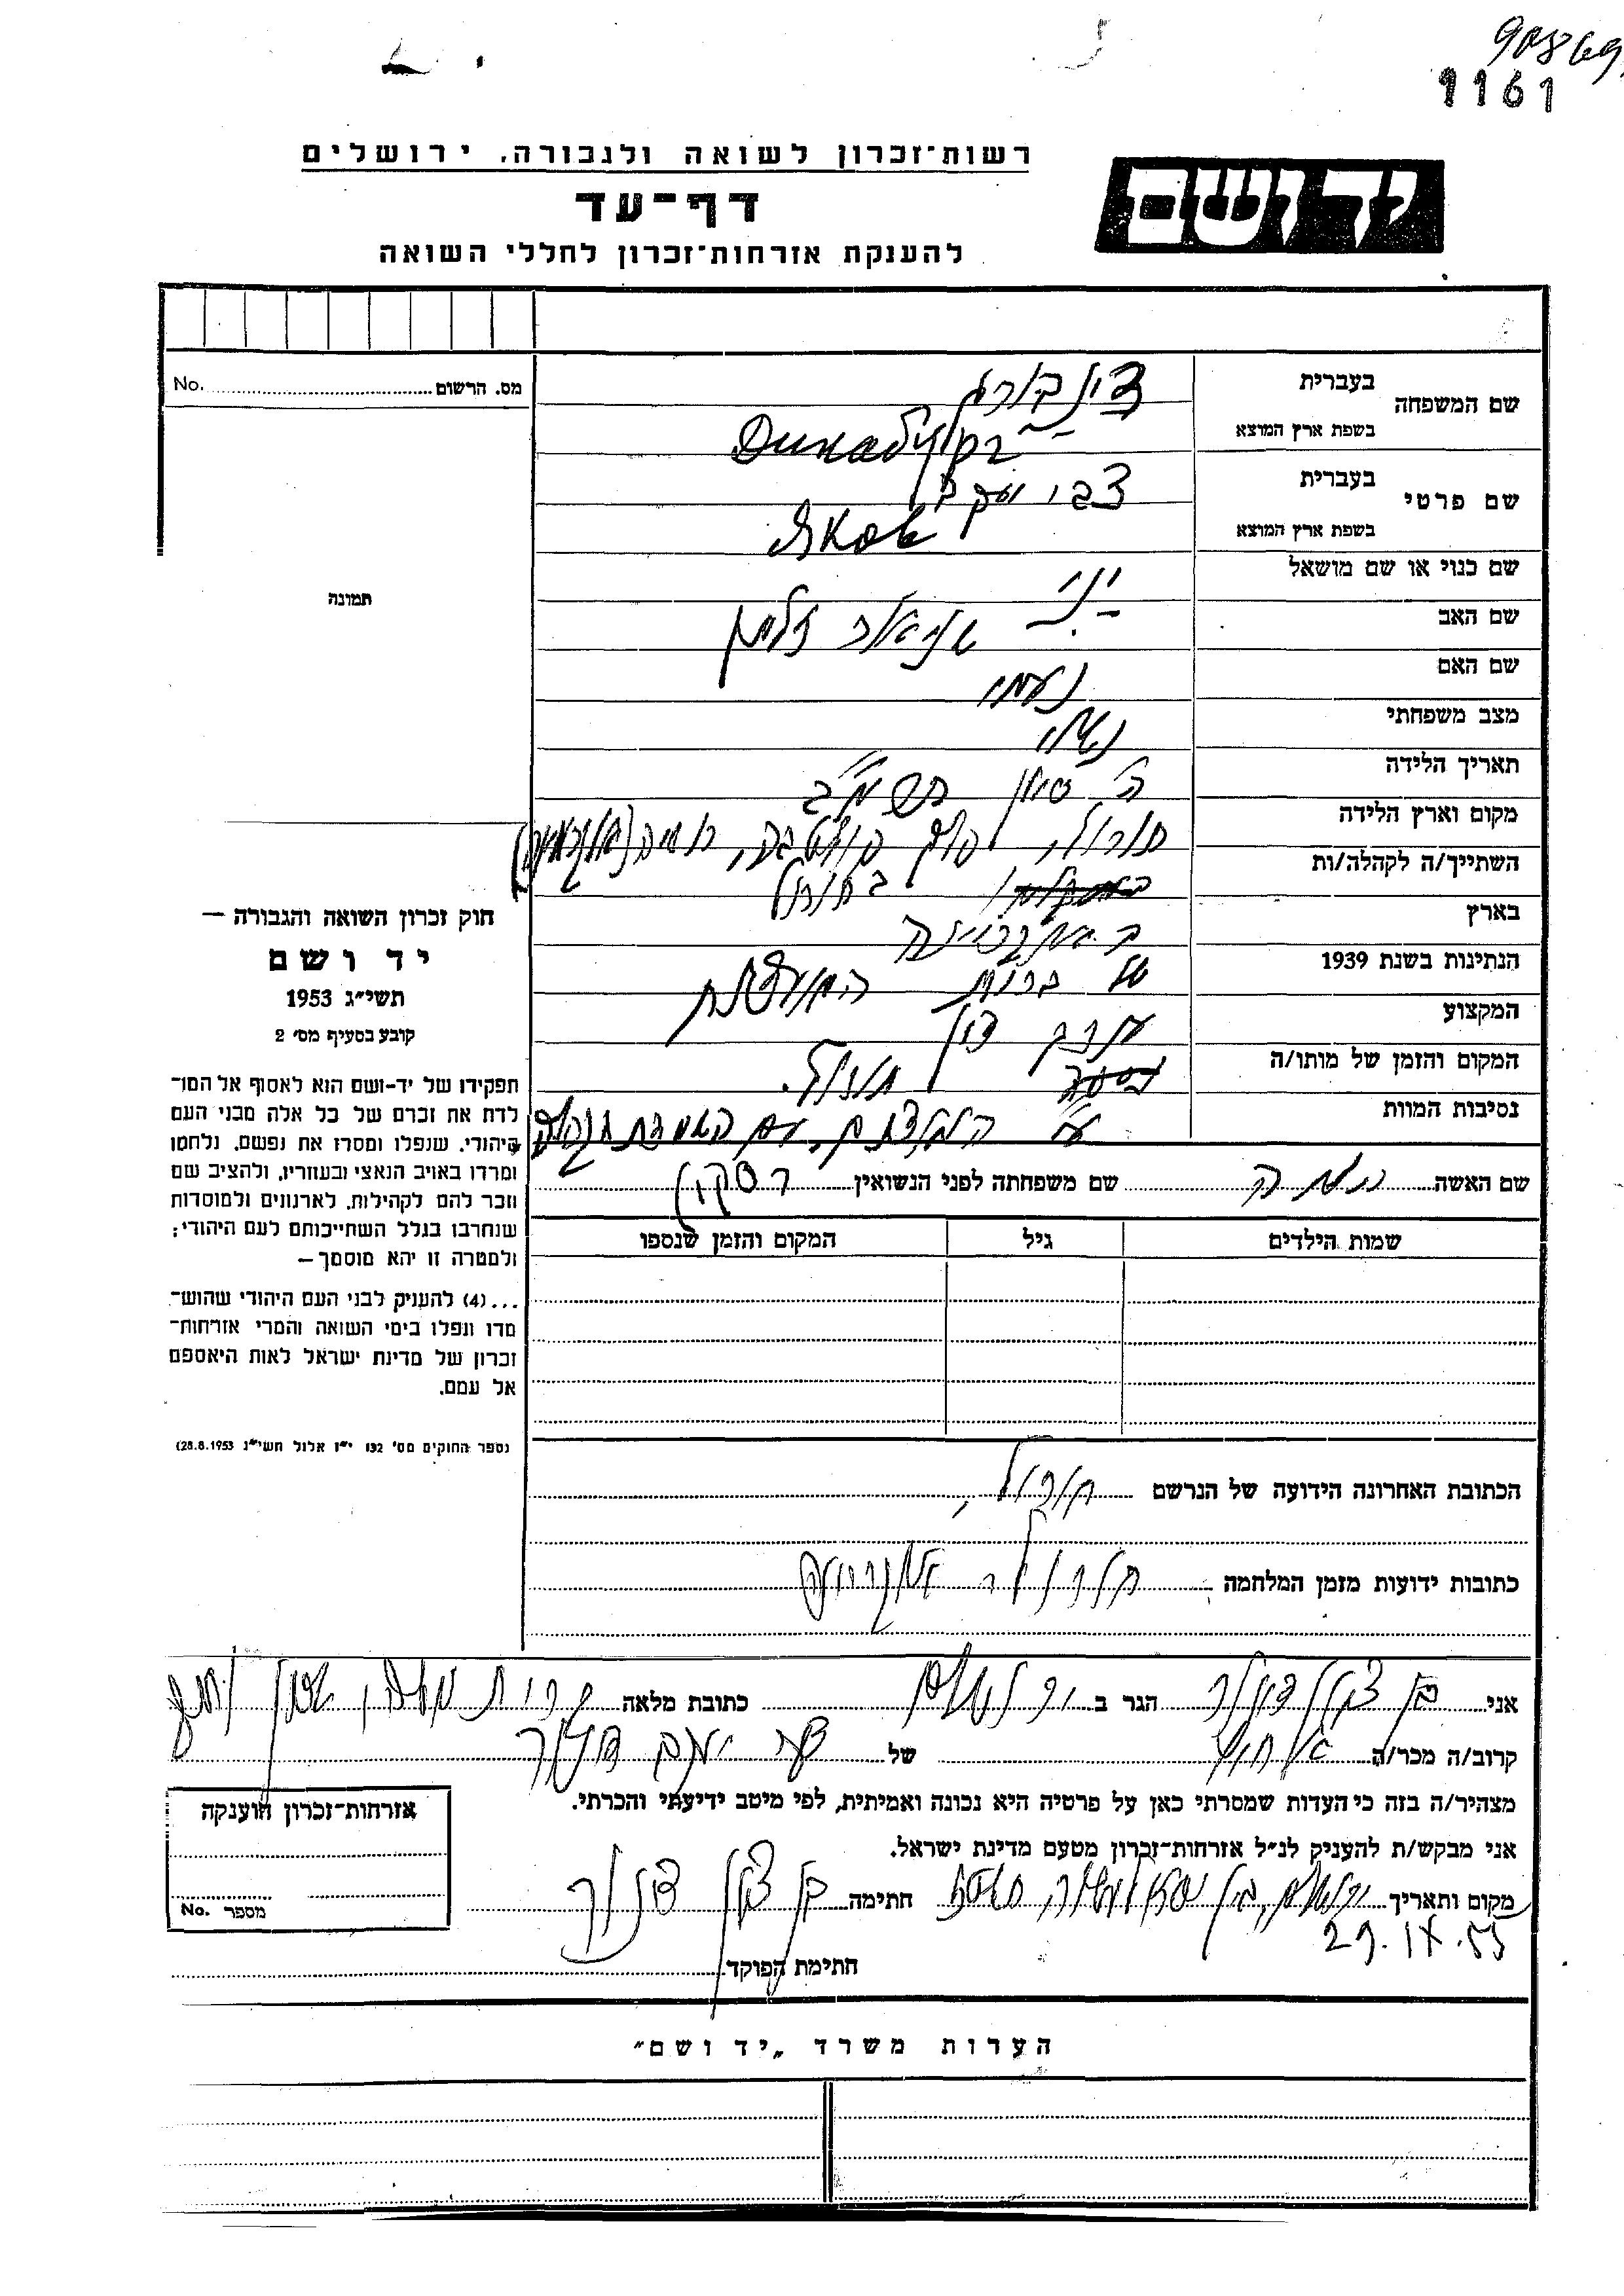 1161
רשות־זכרון לשואה ולגבורה, ירושלים
יד ושם
דף־עד
להענקת אזרחות־זכרון לחללי השואה
מס. הרשום No.
שם המשפחה
בעברית דינבורג
בשפת ארץ המוצא
שם פרטי
בעברית צבי יעקב
בשפת ארץ המוצא
תמונה
שם כנוי או שם מושאל
שם האב שניאור זלמן
שם האם נעמי
מצב משפחתי נשוי
תאריך הלידה ה׳
מקום וארץ הלידה חורול, פלך פולטבה, רוסיה (אוקראינה)
השתייך/ה לקהלה/ות בחורול
בארץ באוקראינה
הנתינות בשנת 1939 של ברית המועצות
המקצוע עורך דין
המקום והזמן של מותו/ה חורול.
נסיבות המוות
שם האשה שם משפחתה לפני הנשואין
שמות הילדים גיל המקום והזמן שנספו
חוק זכרון השואה והגבורה —
יד ושם
תשי״ג 1953
קובע בסעיף מס׳ 2
תפקידו של יד־ושם הוא לאסוף אל המו־
לדת את זכרם של כל אלה מבני העם
היהודי, שנפלו ומסרו את נפשם, נלחמו
ומרדו באויב הנאצי ובעוזריו, ולהציב שם
וזכר להם לקהילות, לארגונים ולמוסדות
שנחרבו בגלל השתייכותם לעם היהודי;
ולמטרה זו יהא מוסמך—
...(4) להעניק לבני העם היהודי שהוש־
מדו ונפלו בימי השואה והמרי אזרחות־
זכרון של מדינת ישראל לאות היאספם
אל עמם.
(ספר החוקים מס׳ 132 י״ז אלול תשי״ג 28.8.1953)
הכתובת האחרונה הידועה של הנרשם חורול,
כתובות ידועות מזמן המלחמה חורול, אוקראינה
אני בן ציון דינור הגר ב ירושלים כתובת מלאה קרית
קרוב/ה מכר/ה של צבי יעקב
מצהיר/ה בזה כי העדות שמסרתי כאן על פרטיה היא נכונה ואמיתית, לפי מיטב ידיעתי והכרתי.
אני מבקש/ת להעניק לנ״ל אזרחות־זכרון מטעם מדינת ישראל.
מקום ותאריך ירושלים, חתימה בן ציון דינור
29.IX.55
חתימת הפוקד
אזרחות־זכרון הוענקה
מספר No.
הערות משרד „יד ושם״